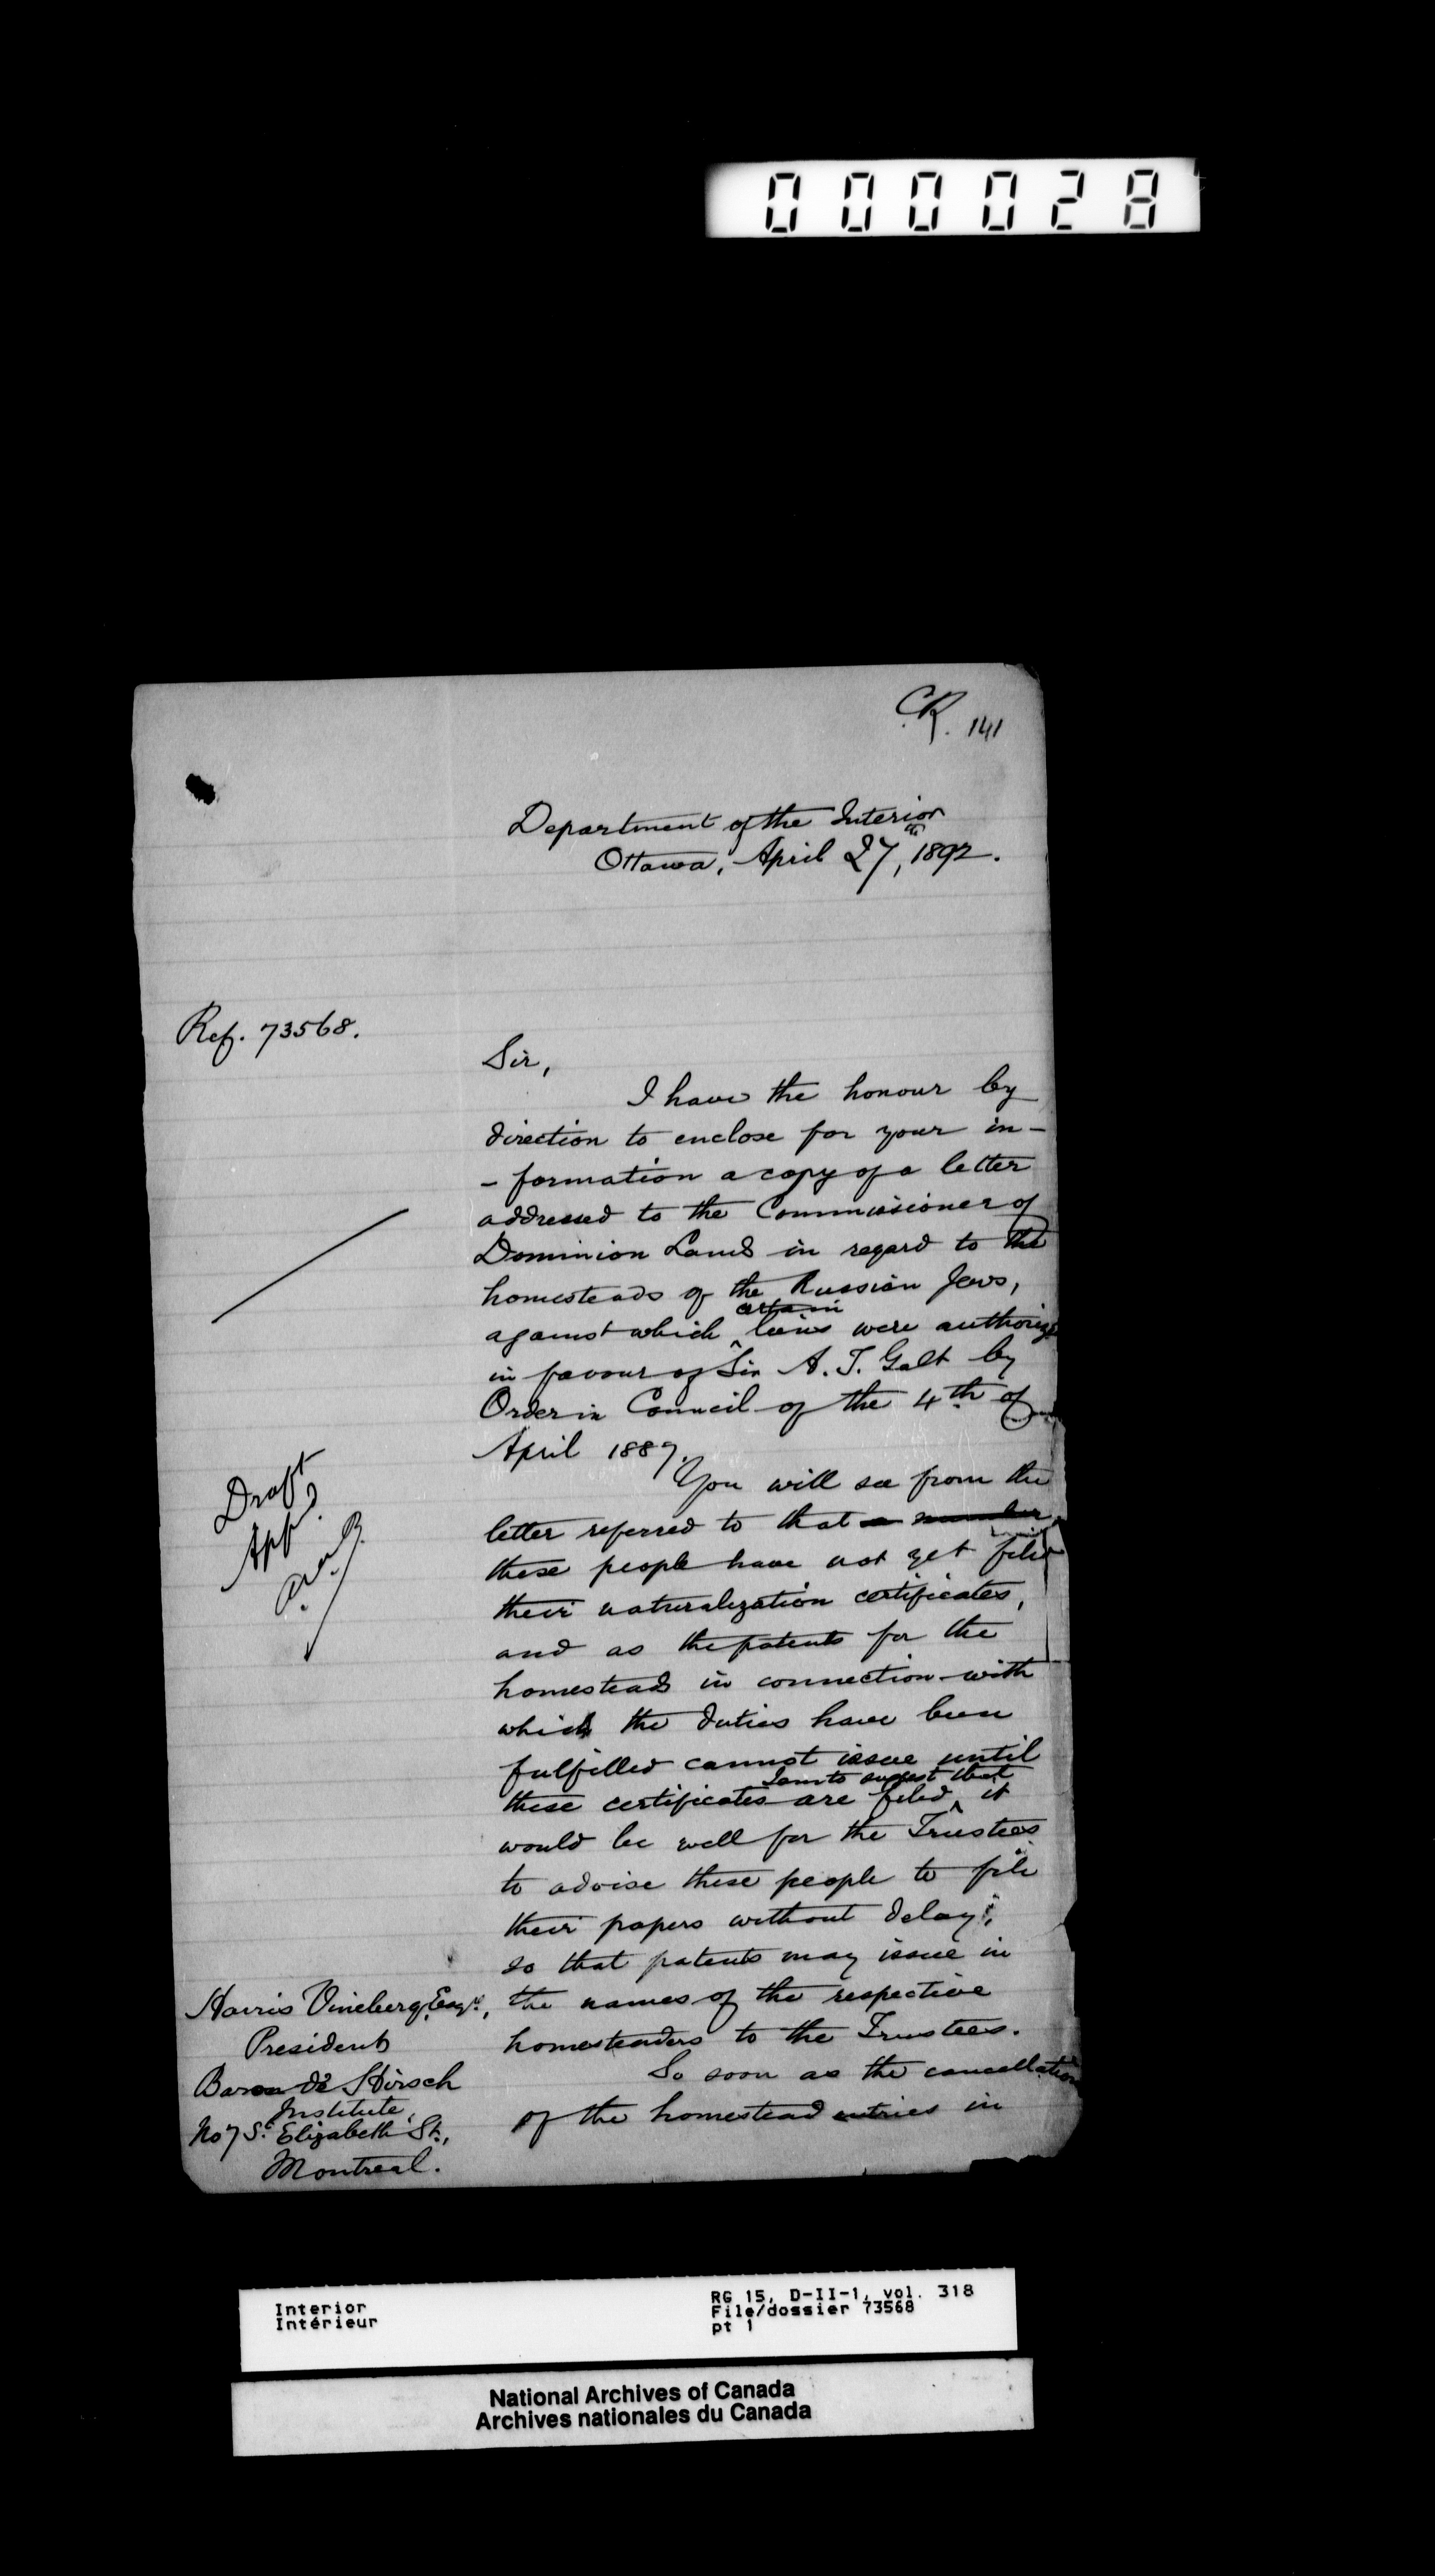 000028
CR. 141
Department of the Interior
Ottawa, April 27th, 1892.
Ref. 73568.
Sir,
I have the honour by
direction to enclose for your in-
- formation a copy of a letter
addressed to the Commissioner of
Dominion Lands in regard to the
homesteads of the Russian Jews,
certain
against which liens were authorize
in favour of Sir A. T. Galt by
Order in Council of the 4th of
April 1889.
Draft
App
You will see from the
letter referred to that a number
these people have not yet filed
their naturalization certificates,
and as the patents for the
homesteads in connection with
which the duties have been
fulfilled cannot issue until
I am to suggest that
these certificates are filed, it
would be well for the Trustees
to advise these people to file
their papers without delay,
so that patents may issue in
the names of the respective
homesteaders to the Trustees.
So soon as the cancellation
of the homestead entries in
Harris Vineberg, Esqr.,
President
Baron de Hirsch
Institute,
No 7 St. Elizabeth St.,
Montreal.
Interior
Intérieur
RG 15, D-II-1, vol. 318
File/dossier 73568
pt 1
National Archives of Canada
Archives nationales du Canada